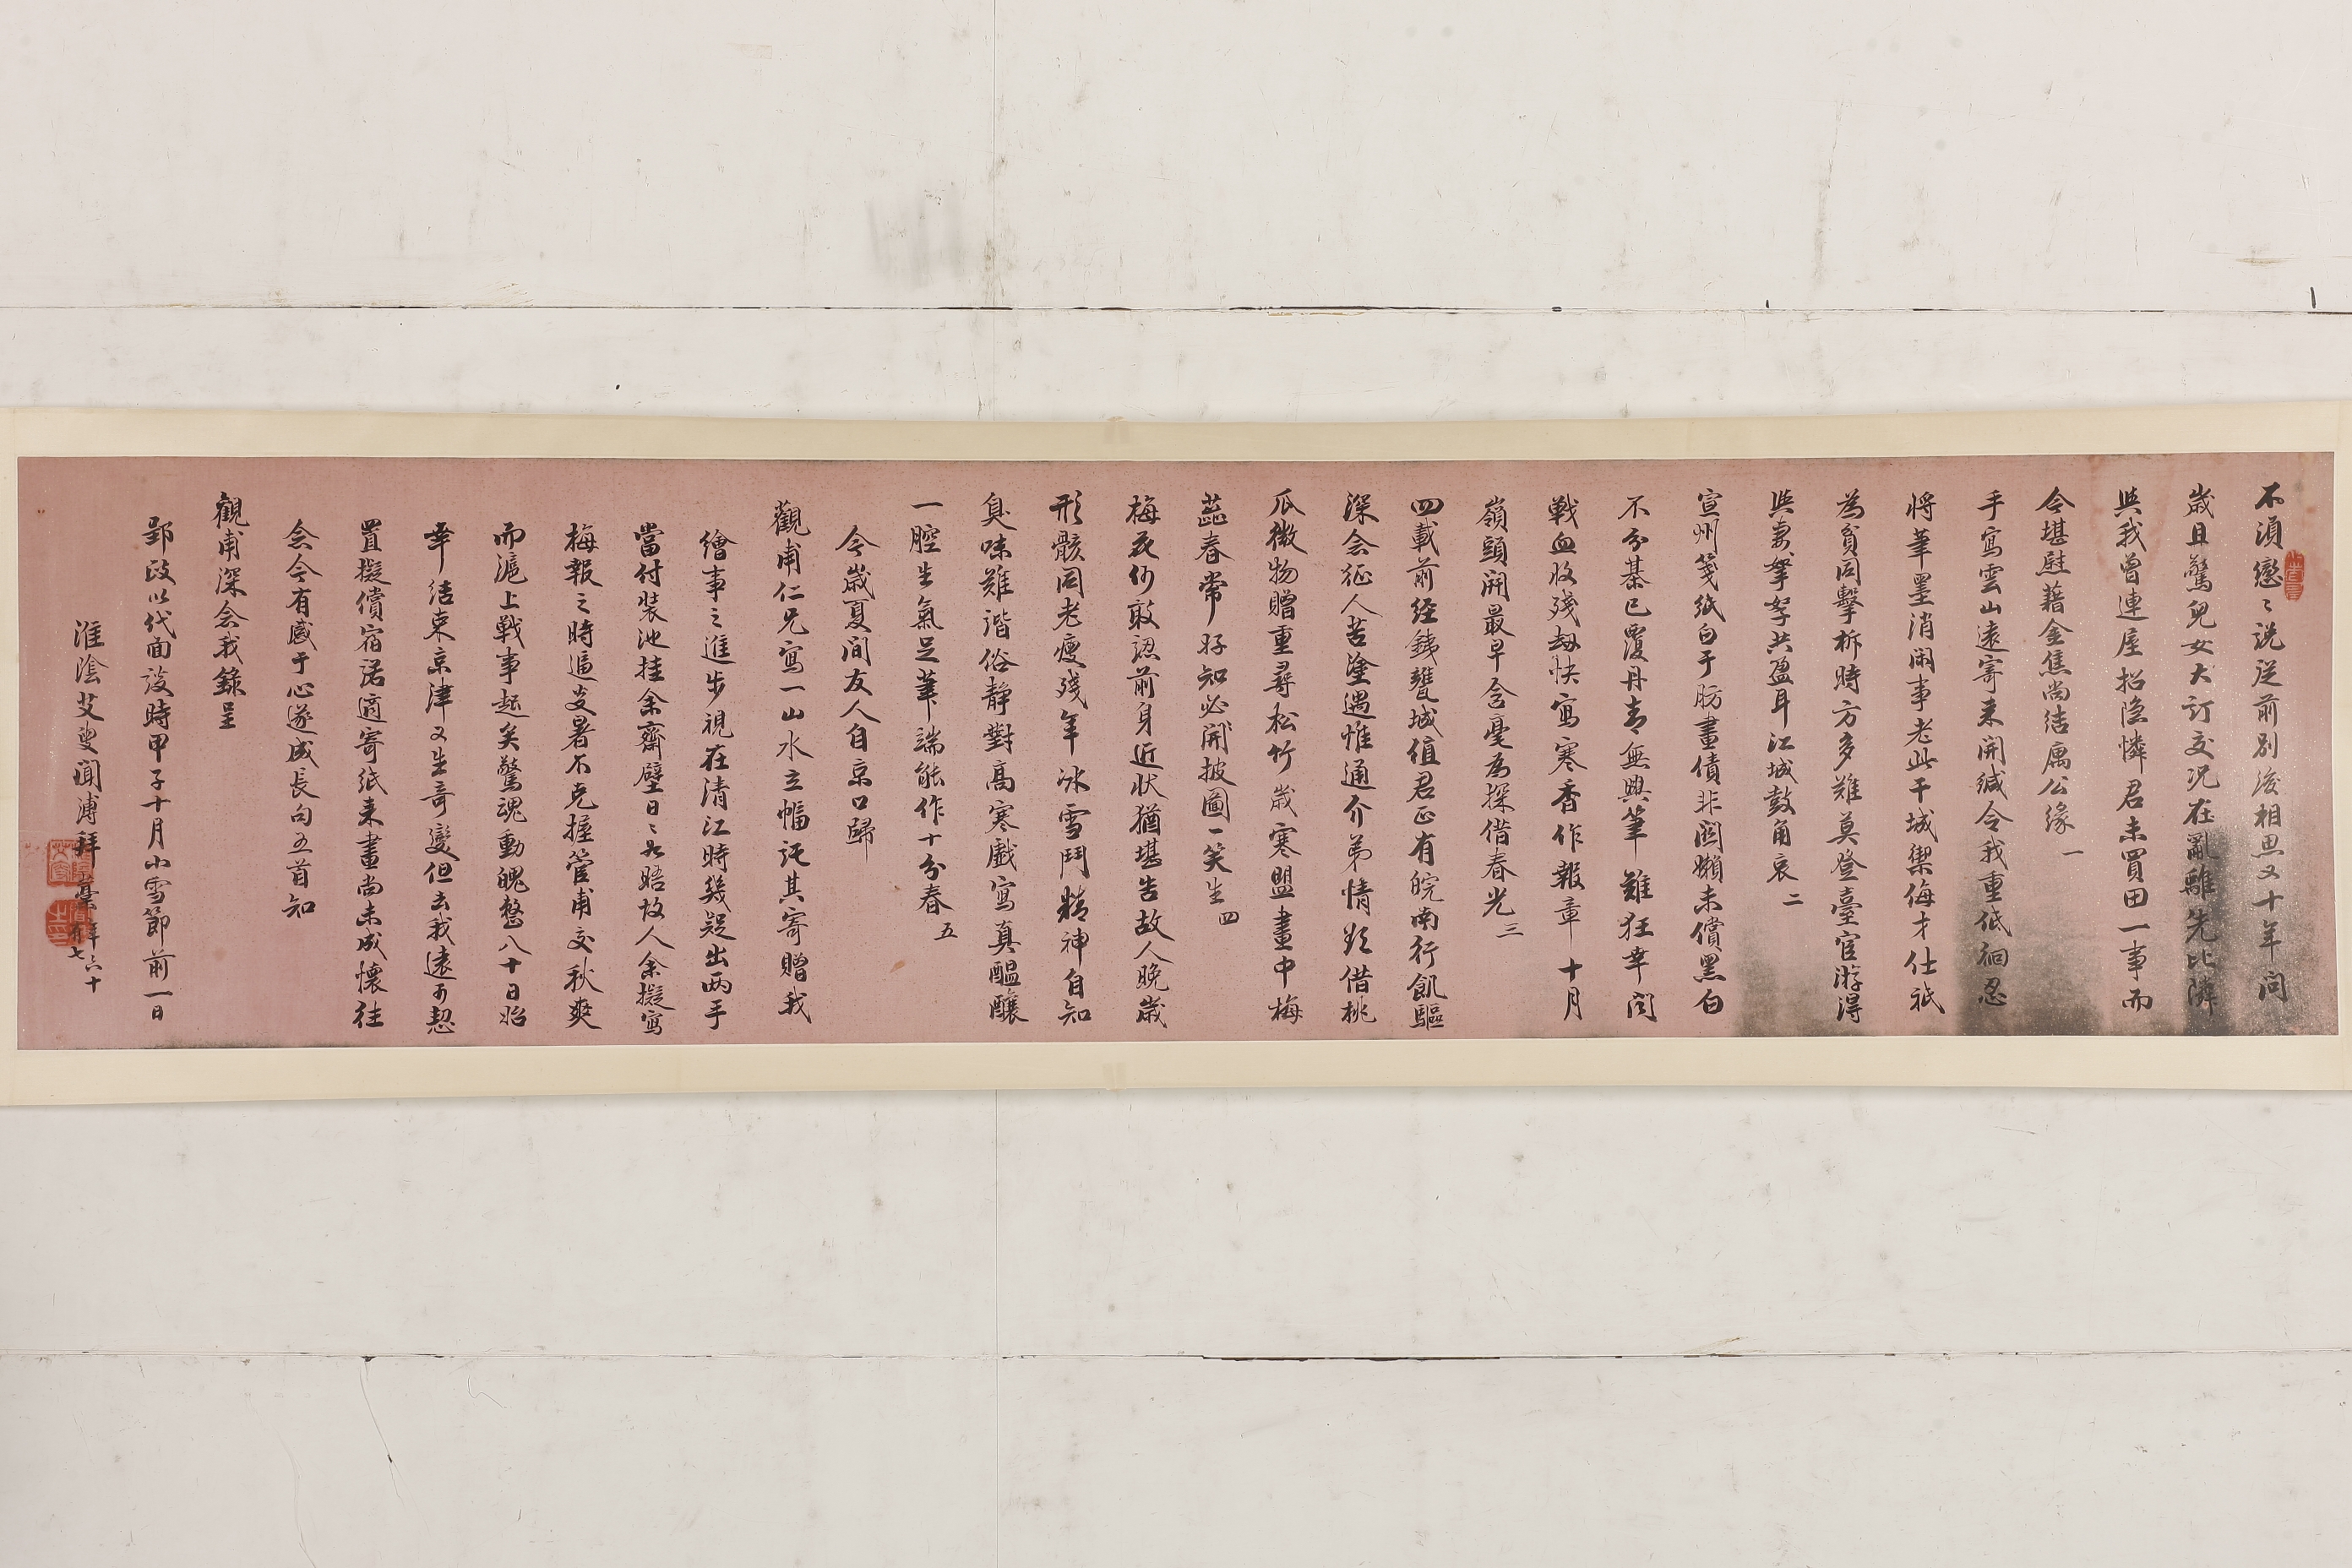 不須戀〻說從前別後相思又十年問
歲且驚兒女大訂交況在亂離先比鄰
與我曾連屋招隱憐君未買田一事而
今堪慰藉金焦尚結屬公緣一
手寫雲山遠寄來開緘令我重低徊忍
將筆墨消閒事老此干城禦侮才仕祇
為貧同擊柝時方多難莫登臺宦游得
與妻孥共盈耳江城鼓角哀二
宣州箋紙白于肪畫債非關嬾未償黑白
不分棊已覆丹青無興筆難狂幸閱
戰血收殘劫快寫寒香作報章十月
嶺頭開最早含毫為探借春光三
四載前經鐵甕城值君正有皖南行飢驅
深会征人苦塗遇惟通介弟情欵借桃
瓜微物贈重尋松竹歲寒盟畫中梅
蕊春常好知必開披圖一笑生四
梅花何敢認前身近狀猶堪告故人晚歲
形骸同老瘦殘年冰雪鬥精神自知
臭味難諧俗靜對高寒戲寫真醞釀
一腔生氣足筆端能作十分春五
今歲夏間友人自京口歸
觀甫仁兄寫一山水立幅託其寄贈我
繪事之進步視在清江時幾疑出兩手
當付裝池挂余齋壁日〻如晤故人余擬寫
梅報之時適炎暑不克握管甫交秋爽
而滬上戰事起矣驚魂動魄整八十日始
幸結束京津又生奇變但去我遠可恝
置擬償宿諾適寄紙來畫尚未成懷往
念今有感于心遂成長句五首知
觀甫深念我錄呈
郢政以代面談時甲子十月小雪節前一日
淮陰艾叟聞溥拜藁年六十有七